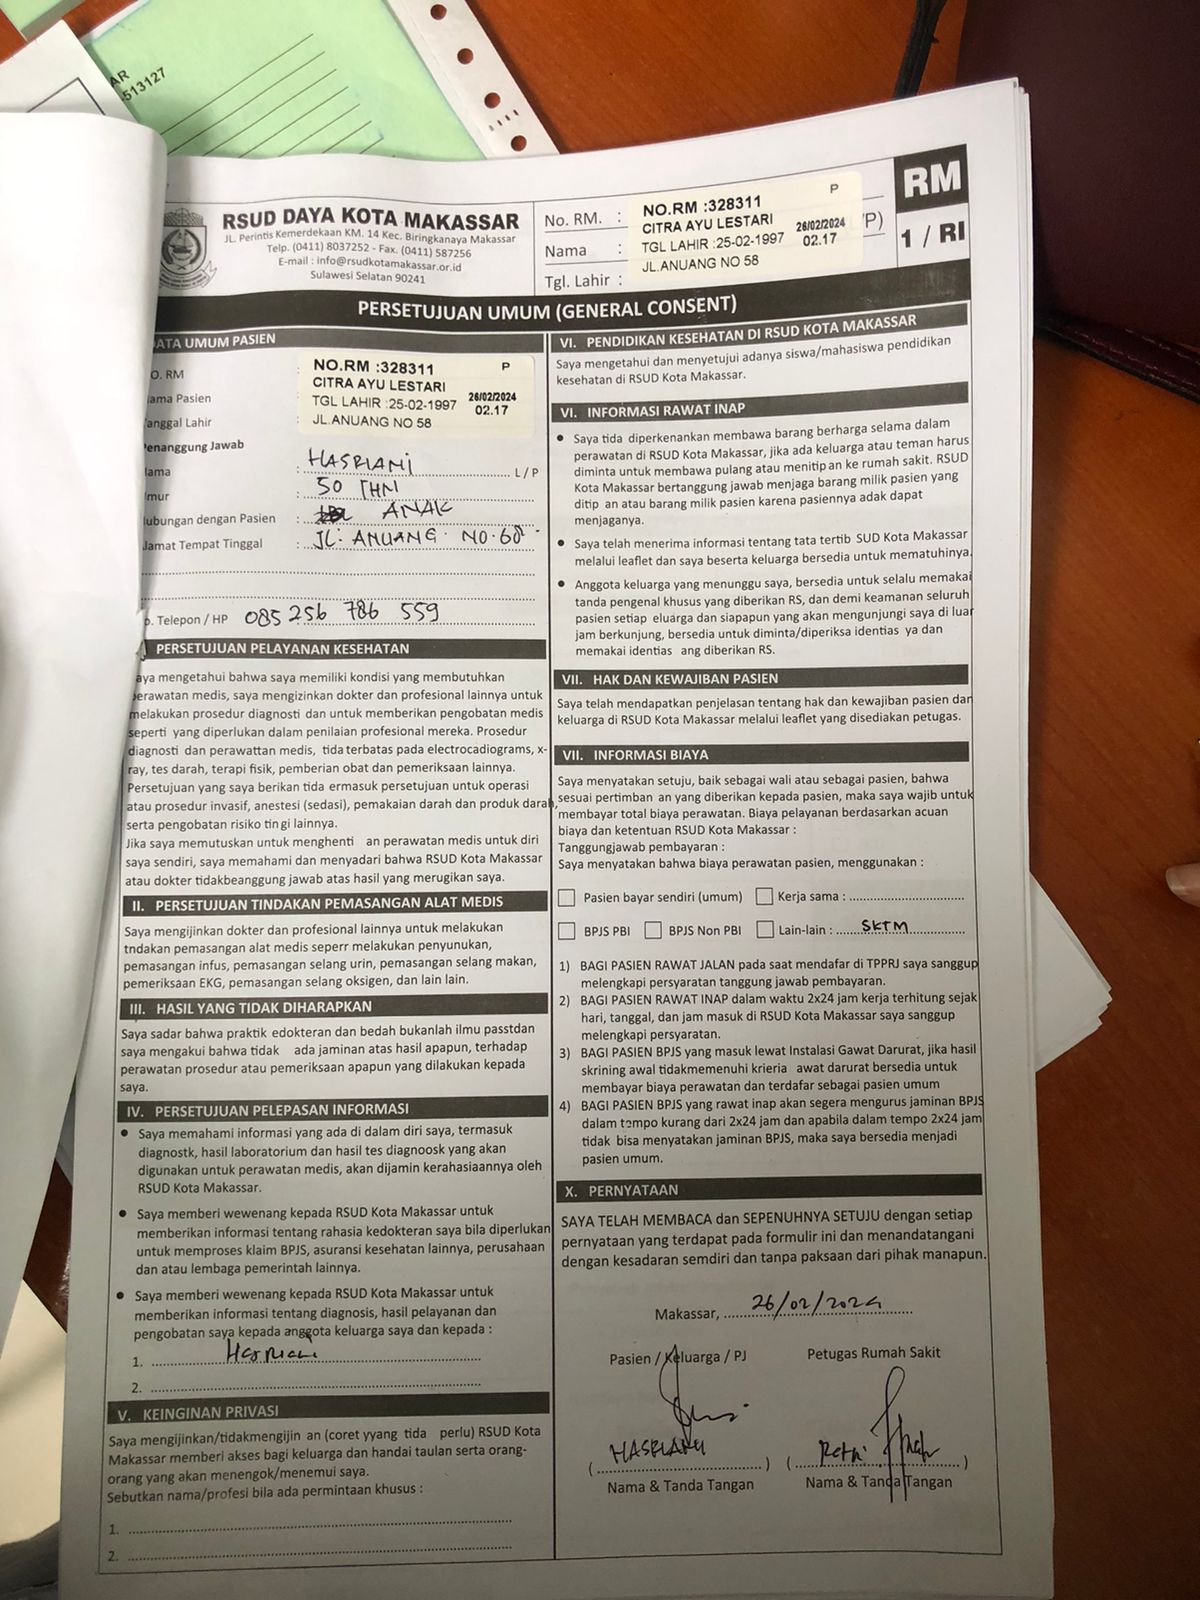 AR
-513127
RSUD DAYA KOTA MAKASSAR
JL. Perintis Kemerdekaan KM. 14 Kec. Biringkanaya Makassar
Telp. (0411) 8037252 - Fax. (0411) 587256
E-mail : info@rsudkotamakassar.or.id
Sulawesi Selatan 90241
No. RM. :
Nama :
Tgl. Lahir :
NO.RM :328311 P
CITRA AYU LESTARI
TGL LAHIR :25-02-1997 26/02/2024
JL.ANUANG NO 58 02.17
/P)
RM
1 / RI
PERSETUJUAN UMUM (GENERAL CONSENT)
ATA UMUM PASIEN
O. RM
ama Pasien :
anggal Lahir :
NO.RM :328311 P
CITRA AYU LESTARI
TGL LAHIR :25-02-1997 26/02/2024
JL.ANUANG NO 58 02.17
enanggung Jawab
ama : HASRIANI L / P
mur : 50 THN
ubungan dengan Pasien : ANAK
lamat Tempat Tinggal : JL. ANUANG NO.68
. Telepon / HP 085 256 786 559
PERSETUJUAN PELAYANAN KESEHATAN
aya mengetahui bahwa saya memiliki kondisi yang membutuhkan
perawatan medis, saya mengizinkan dokter dan profesional lainnya untuk
melakukan prosedur diagnosti dan untuk memberikan pengobatan medis
seperti yang diperlukan dalam penilaian profesional mereka. Prosedur
diagnosti dan perawattan medis, tida terbatas pada electrocadiograms, x-
ray, tes darah, terapi fisik, pemberian obat dan pemeriksaan lainnya.
Persetujuan yang saya berikan tida ermasuk persetujuan untuk operasi
atau prosedur invasif, anestesi (sedasi), pemakaian darah dan produk darah,
serta pengobatan risiko tin gi lainnya.
Jika saya memutuskan untuk menghenti an perawatan medis untuk diri
saya sendiri, saya memahami dan menyadari bahwa RSUD Kota Makassar
atau dokter tidakbeanggung jawab atas hasil yang merugikan saya.
II. PERSETUJUAN TINDAKAN PEMASANGAN ALAT MEDIS
Saya mengijinkan dokter dan profesional lainnya untuk melakukan
tndakan pemasangan alat medis seperr melakukan penyunukan,
pemasangan infus, pemasangan selang urin, pemasangan selang makan,
pemeriksaan EKG, pemasangan selang oksigen, dan lain lain.
III. HASIL YANG TIDAK DIHARAPKAN
Saya sadar bahwa praktik edokteran dan bedah bukanlah ilmu passtdan
saya mengakui bahwa tidak ada jaminan atas hasil apapun, terhadap
perawatan prosedur atau pemeriksaan apapun yang dilakukan kepada
saya.
IV. PERSETUJUAN PELEPASAN INFORMASI
● Saya memahami informasi yang ada di dalam diri saya, termasuk
diagnostk, hasil laboratorium dan hasil tes diagnoosk yang akan
digunakan untuk perawatan medis, akan dijamin kerahasiaannya oleh
RSUD Kota Makassar.
● Saya memberi wewenang kepada RSUD Kota Makassar untuk
memberikan informasi tentang rahasia kedokteran saya bila diperlukan
untuk memproses klaim BPJS, asuransi kesehatan lainnya, perusahaan
dan atau lembaga pemerintah lainnya.
● Saya memberi wewenang kepada RSUD Kota Makassar untuk
memberikan informasi tentang diagnosis, hasil pelayanan dan
pengobatan saya kepada anggota keluarga saya dan kepada :
1. Hasriani
2.
V. KEINGINAN PRIVASI
Saya mengijinkan/tidakmengijin an (coret yyang tida perlu) RSUD Kota
Makassar memberi akses bagi keluarga dan handai taulan serta orang-
orang yang akan menengok/menemui saya.
Sebutkan nama/profesi bila ada permintaan khusus :
1.
2.
VI. PENDIDIKAN KESEHATAN DI RSUD KOTA MAKASSAR
Saya mengetahui dan menyetujui adanya siswa/mahasiswa pendidikan
kesehatan di RSUD Kota Makassar.
VI. INFORMASI RAWAT INAP
● Saya tida diperkenankan membawa barang berharga selama dalam
perawatan di RSUD Kota Makassar, jika ada keluarga atau teman harus
diminta untuk membawa pulang atau menitip an ke rumah sakit. RSUD
Kota Makassar bertanggung jawab menjaga barang milik pasien yang
ditip an atau barang milik pasien karena pasiennya adak dapat
menjaganya.
● Saya telah menerima informasi tentang tata tertib SUD Kota Makassar
melalui leaflet dan saya beserta keluarga bersedia untuk mematuhinya.
● Anggota keluarga yang menunggu saya, bersedia untuk selalu memakai
tanda pengenal khusus yang diberikan RS, dan demi keamanan seluruh
pasien setiap eluarga dan siapapun yang akan mengunjungi saya di luar
jam berkunjung, bersedia untuk diminta/diperiksa identias ya dan
memakai identias ang diberikan RS.
VII. HAK DAN KEWAJIBAN PASIEN
Saya telah mendapatkan penjelasan tentang hak dan kewajiban pasien dan
keluarga di RSUD Kota Makassar melalui leaflet yang disediakan petugas.
VII. INFORMASI BIAYA
Saya menyatakan setuju, baik sebagai wali atau sebagai pasien, bahwa
sesuai pertimban an yang diberikan kepada pasien, maka saya wajib untuk
membayar total biaya perawatan. Biaya pelayanan berdasarkan acuan
biaya dan ketentuan RSUD Kota Makassar :
Tanggungjawab pembayaran :
Saya menyatakan bahwa biaya perawatan pasien, menggunakan :
Pasien bayar sendiri (umum) Kerja sama :
BPJS PBI BPJS Non PBI Lain-lain : SKTM
1) BAGI PASIEN RAWAT JALAN pada saat mendafar di TPPRJ saya sanggup
melengkapi persyaratan tanggung jawab pembayaran.
2) BAGI PASIEN RAWAT INAP dalam waktu 2x24 jam kerja terhitung sejak
hari, tanggal, dan jam masuk di RSUD Kota Makassar saya sanggup
melengkapi persyaratan.
3) BAGI PASIEN BPJS yang masuk lewat Instalasi Gawat Darurat, jika hasil
skrining awal tidakmemenuhi krieria awat darurat bersedia untuk
membayar biaya perawatan dan terdafar sebagai pasien umum
4) BAGI PASIEN BPJS yang rawat inap akan segera mengurus jaminan BPJS
dalam tempo kurang dari 2x24 jam dan apabila dalam tempo 2x24 jam
tidak bisa menyatakan jaminan BPJS, maka saya bersedia menjadi
pasien umum.
X. PERNYATAAN
SAYA TELAH MEMBACA dan SEPENUHNYA SETUJU dengan setiap
pernyataan yang terdapat pada formulir ini dan menandatangani
dengan kesadaran semdiri dan tanpa paksaan dari pihak manapun.
Makassar, 26/02/2024
Pasien / Keluarga / PJ Petugas Rumah Sakit
( HASRIANI ) ( )
Nama & Tanda Tangan Nama & Tanda Tangan